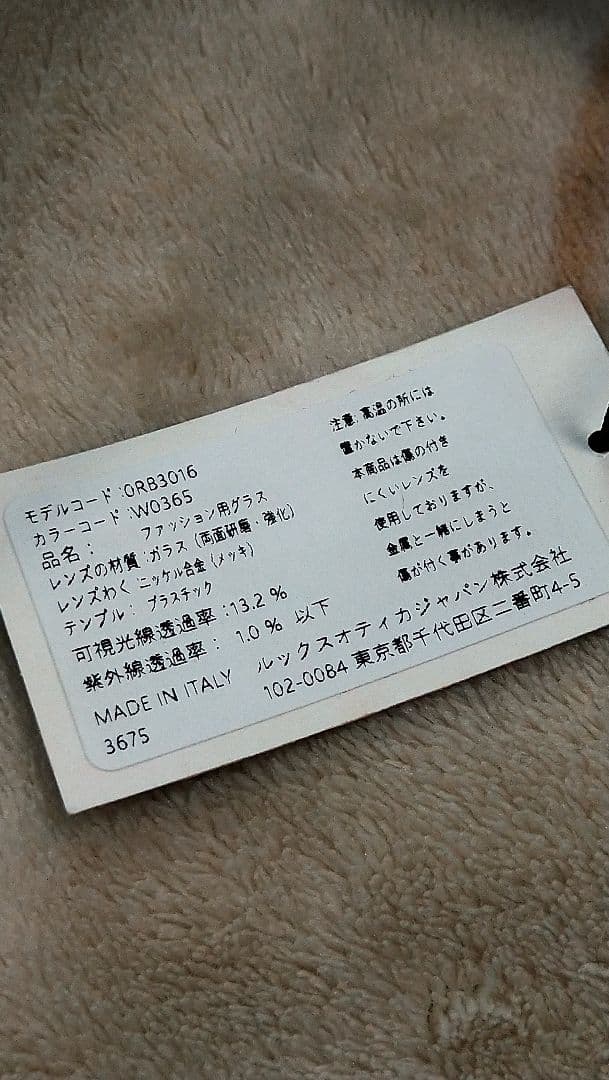 モデルコード :0RB3016
カラーコード :W0365
品名: ファッション用グラス
レンズの材質 :ガラス (両面研磨・強化)
レンズわく :ニッケル合金 (メッキ)
テンプル: プラスチック
可視光線透過率 :13.2 %
紫外線透過率 : 1.0 % 以下
MADE IN ITALY ルックスオティカジャパン株式会社
3675 102-0084 東京都千代田区二番町4-5
注意: 高温の所には
置かないで下さい。
本商品は傷の付き
にくいレンズを
使用しておりますが、
金属と一緒にしまうと
傷が付く事があります。